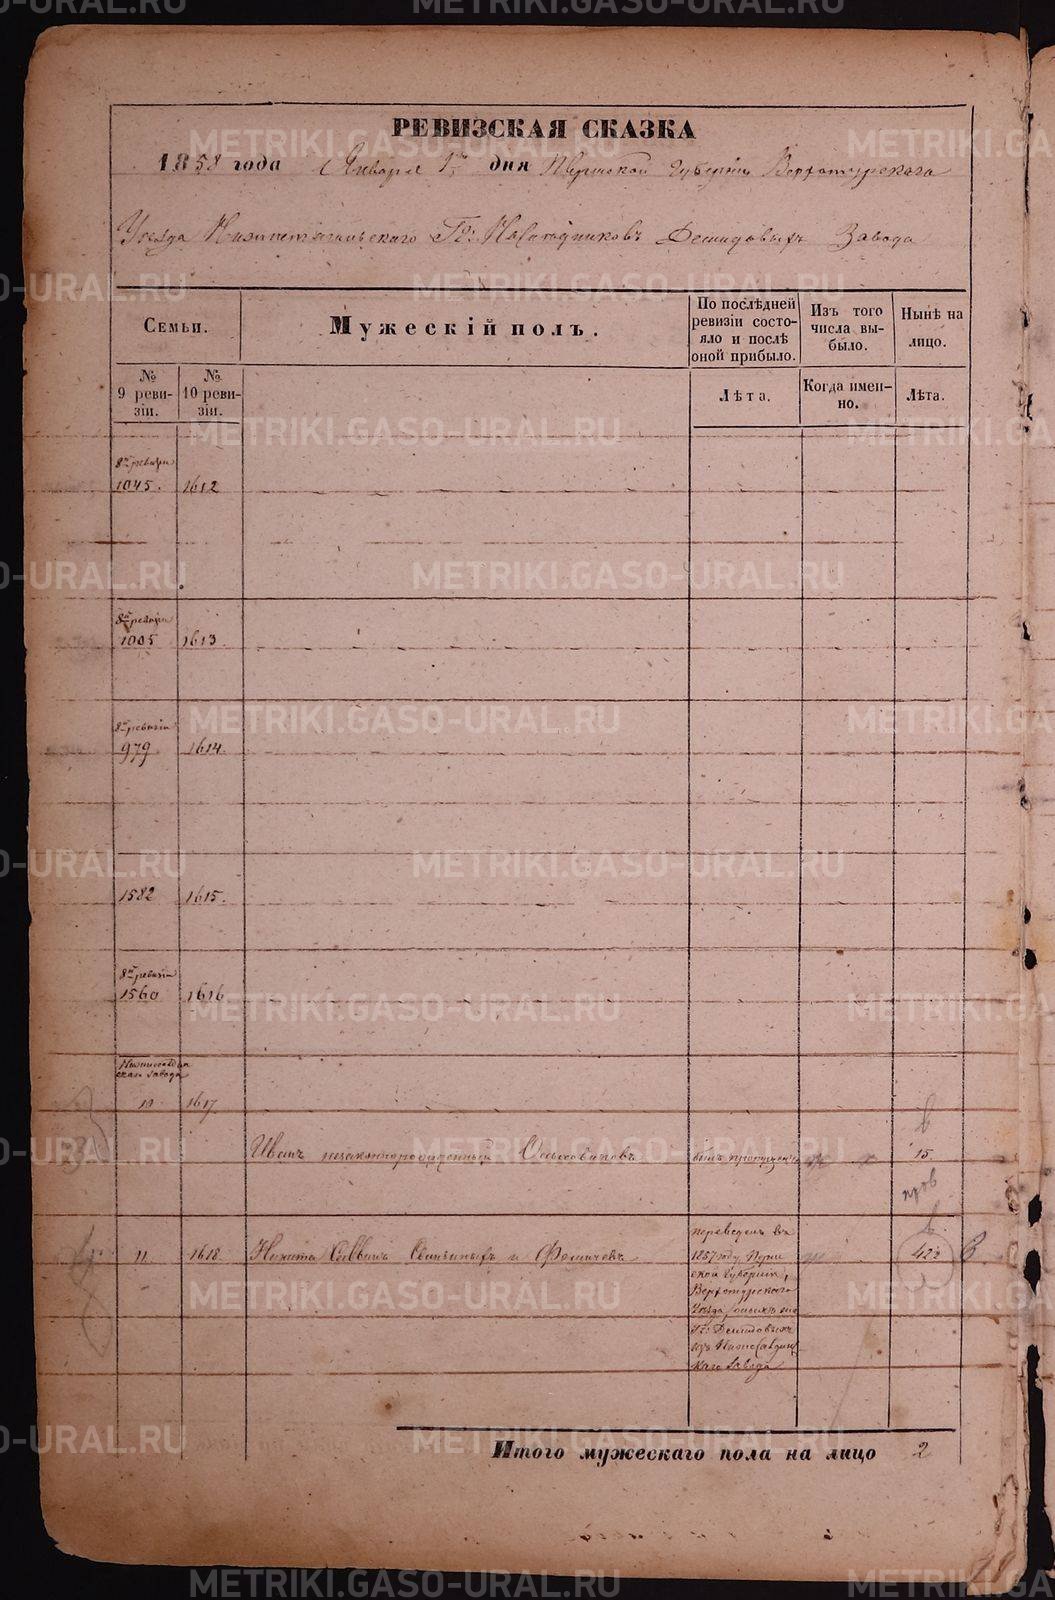 РЕВИЗСКАЯ СКАЗКА
1858 года Января 1го дня Пермской Губернiи Верхотурскаго
Уѣзда Нижнетагильскаго Гг: Наслѣдниковъ Демидовыхъ Завода
Семьи.
Мужескiй полъ.
По послѣдней ревизiи состо-
яло и послѣ
оной прибыло.
Изъ того
числа вы-
было.
Нынѣ на
лицо.
№
9 реви-
зiи.
№
10 реви-
зiи.
Лѣта.
Когда имен-
но.
Лѣта.
8й ревизiи
1045. 1612
8й ревизiи
1005 1613
8й ревизiи
979 1614.
1582 1615.
8й ревизiи
1560 1616
скаго завода
10 1617
Иванъ незаконнорожденный
былъ пропущенъ 15
11. 1618. Никита Савинъ
переведенъ въ
1857 году Перм
ской Губернiи,
Верхотурскаго
Уѣзда
Гг: Демидовыхъ
изъ
каго завода
42½
Итого мужескаго пола на лицо 2
METRIKI.GASO-URAL.RU